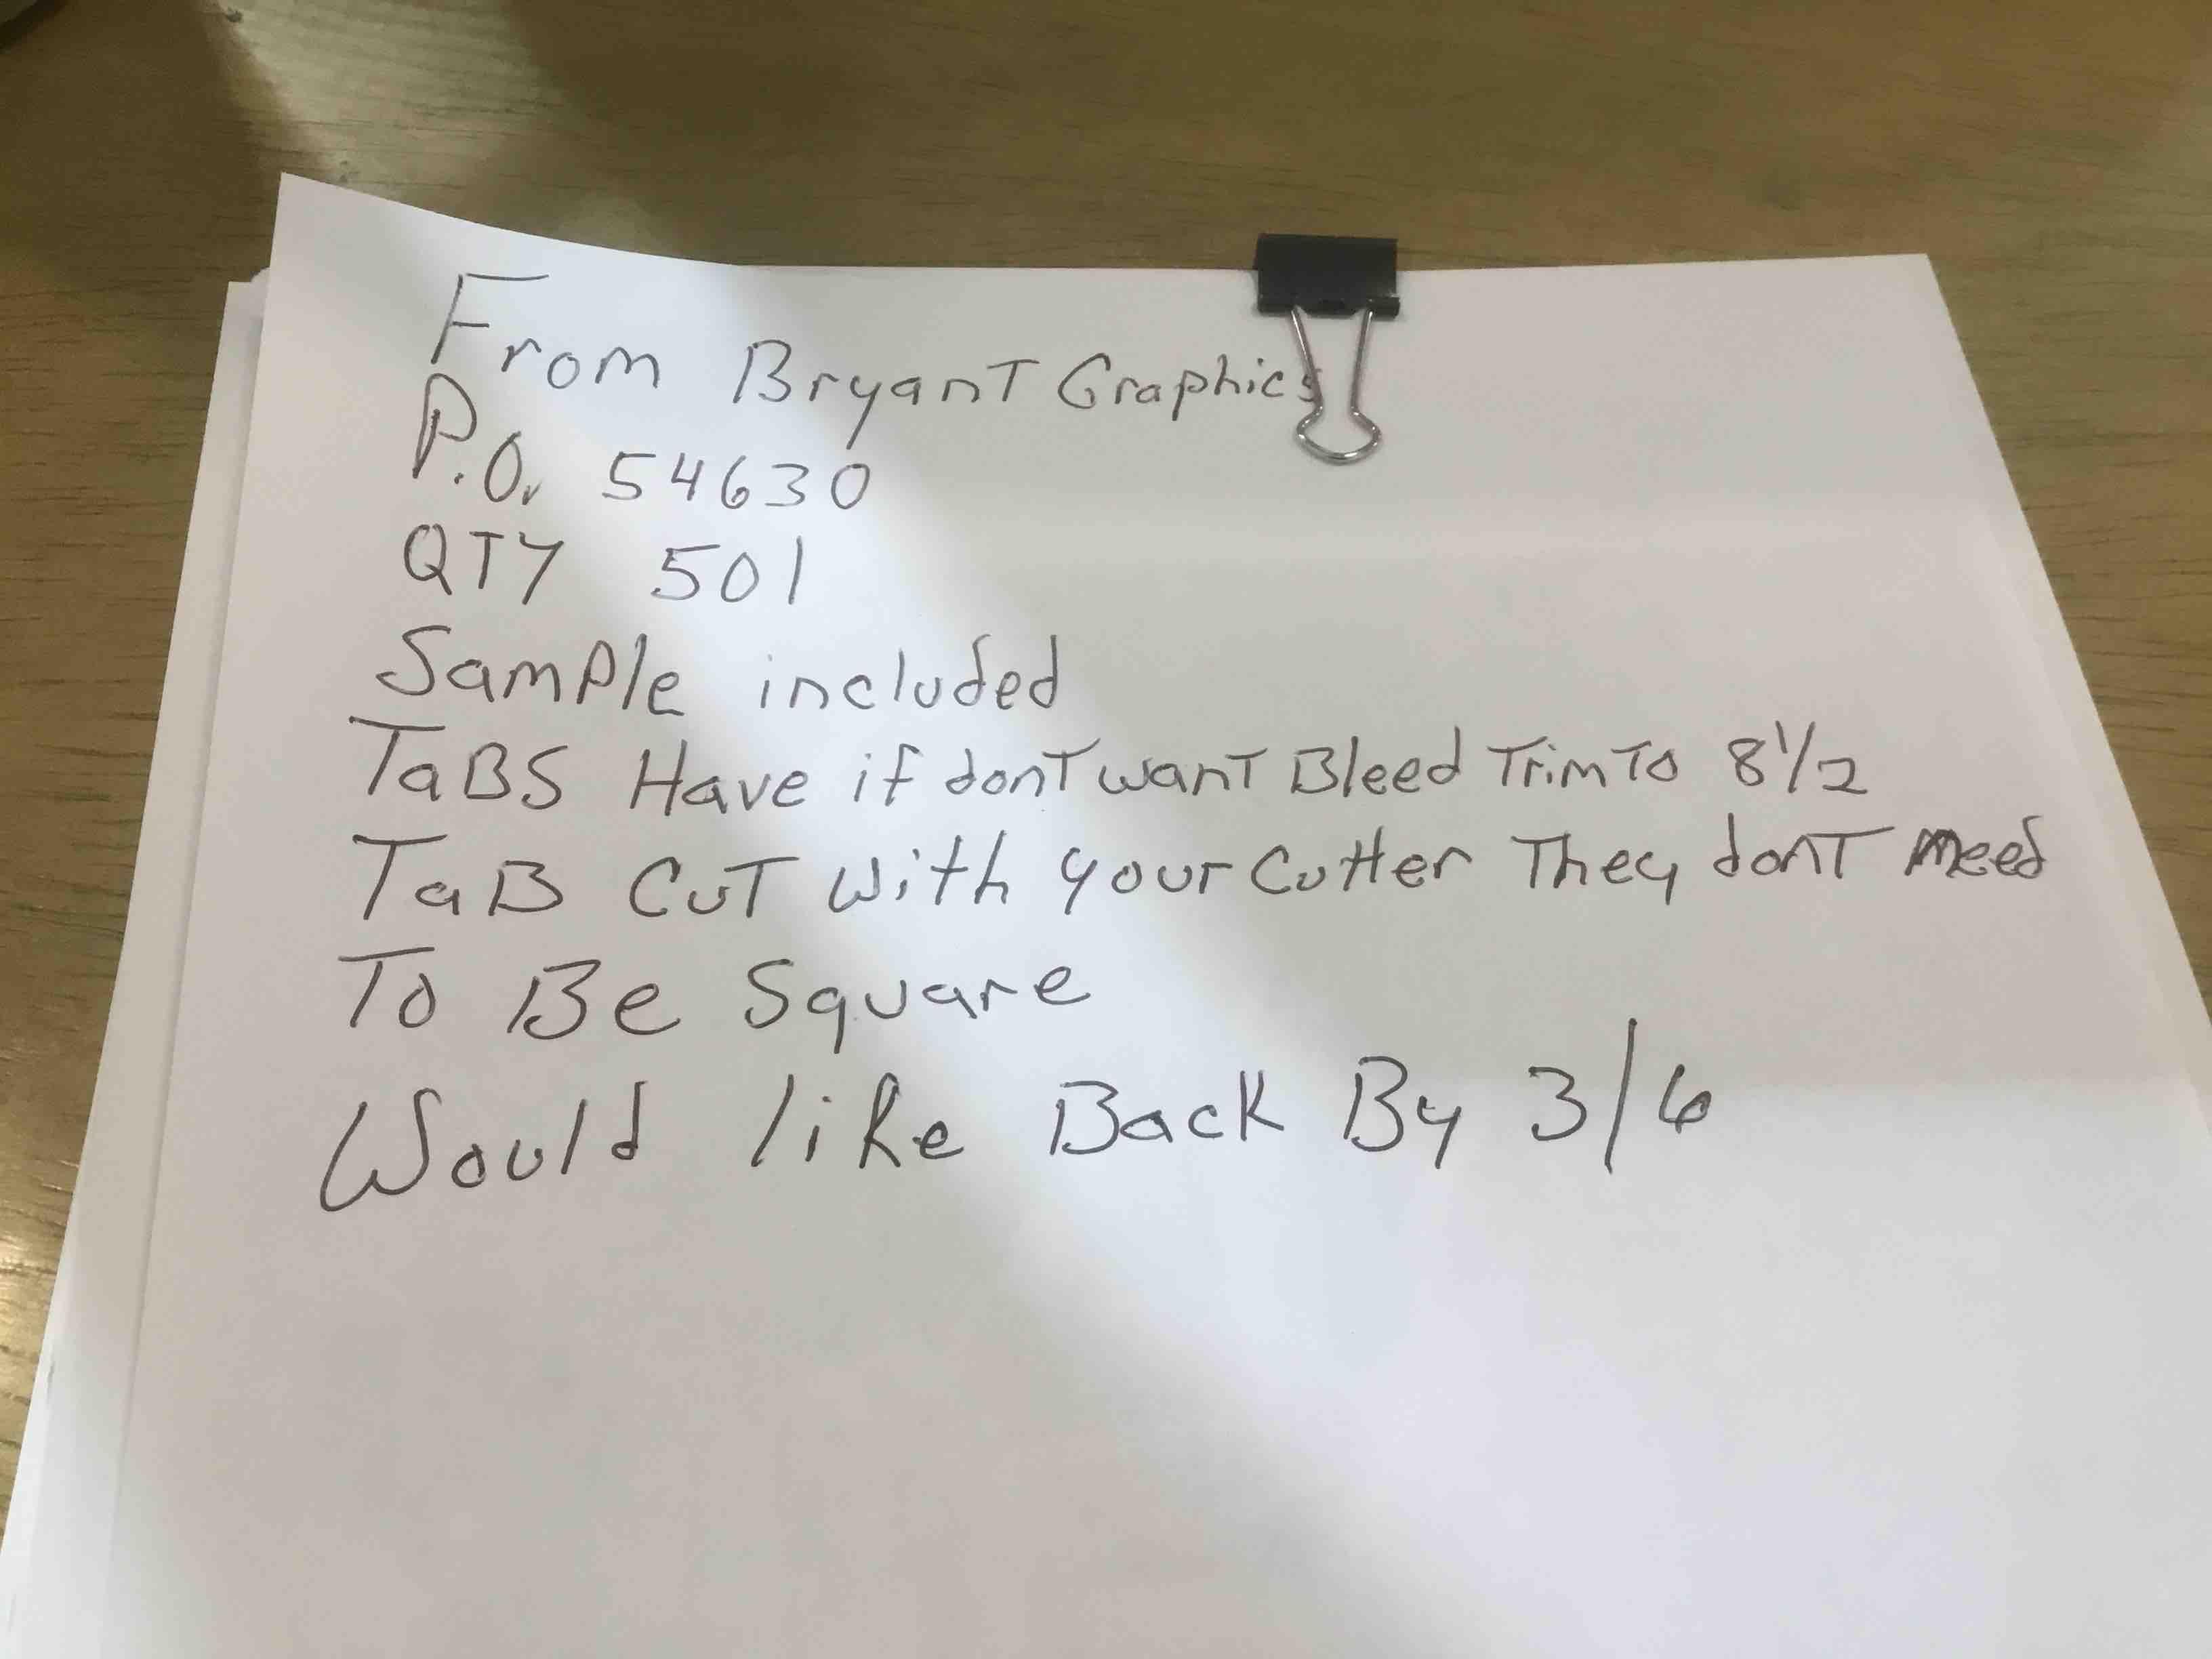 From Bryant Graphics
P.O. 54630
QTY 501
Sample included
TaBS Have if dont want Bleed Trim To 8 1/2
TaB CuT with your Cutter They donT need
To Be Square
Would like Back By 3/6